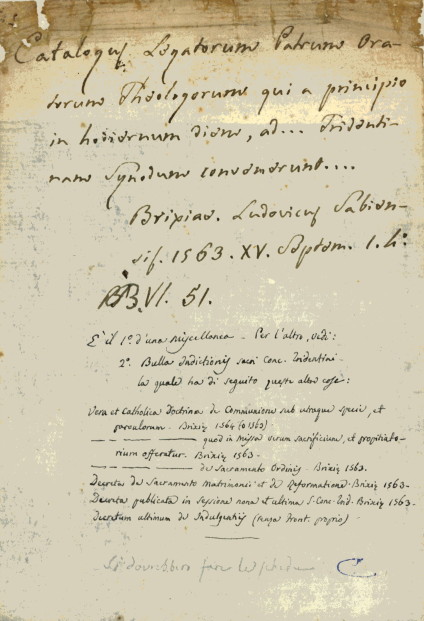 Catalogus Legatorum Patrum Ora-
torum Theologorum qui a principio
in hodiernum diem, ad... Tridenti-
nam Synodum convenerunt....
Brixiae. Ludovicus Sabien-
sis. 1563. XV. Septem. 1. 4°
BB. VI. 51.
È il 1° d'una miscellanea - Per l'altro, vedi:
2°. Bulla Indictionis sacri Conc. Tridentini
la quale ha di seguito queste altre cose:
Vera et Catholica Doctrina de Communione sub utraque specie, et
parvulorum. Brixię 1564 (o 1563)
— — — — quod in missa verum sacrificium, et propitiato-
rium offeratur. Brixię 1563.
— — — — de Sacramento Ordinis. Brixię 1563.
Decreta de Sacramento Matrimonii et de Reformatione. Brixię 1563-
Decreta publicata in sessione nona et ultima S. Conc. Trid. Brixię 1563-
Decretum ultimum de Indulgentiis (senza front. proprio) -
far le schede